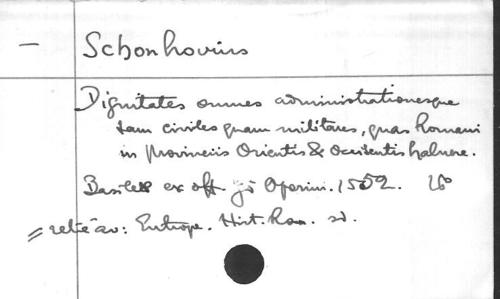 — Schonhovius
Dignitates omnes administrationesque
tam civiles quam militares, quas Romani
in Provinciis Orientis & Occidentis habuere.
Basileæ ex off. Oporini. 1552. 16°
= relié av: Eutrope. Hist. Rom. sd.